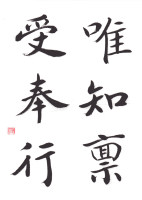 唯知稟
受奉行